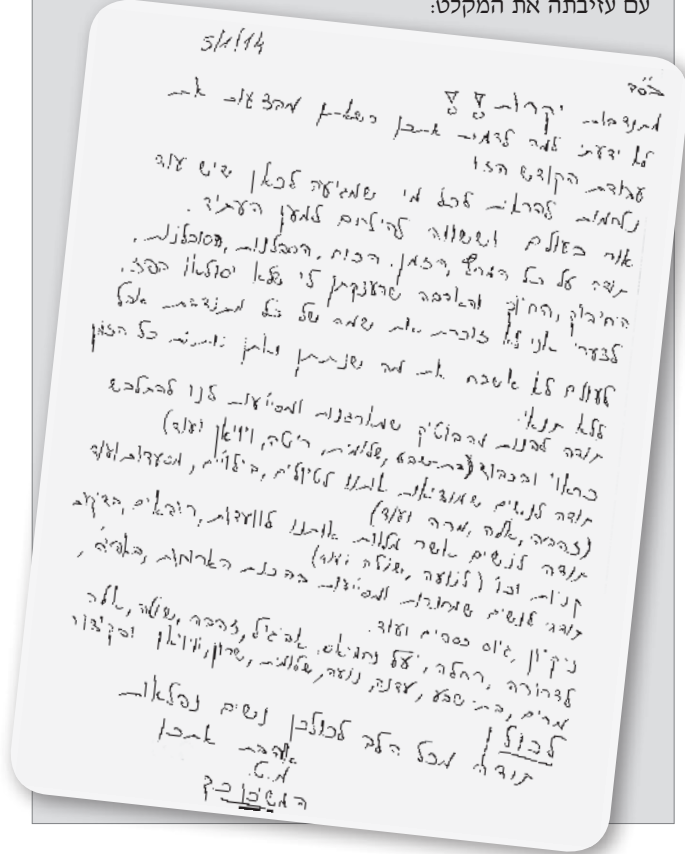 עם עזיבתה את המקלט:
5/1/14
בס"ד
מתנדבות יקרות
לא ידעתי למה לדמות אתכן כשאתן מבצעות את
עבודת הקודש הזו
נלחמות להראות לכל מי שמגיעה לכאן שיש עוד
אור בעולם וששווה להילחם למען העתיד.
תודה על כל המרץ, הזמן, הכוח, הסבלנות, הסובלנות,
החיבוק, החיזוק והאהבה שהענקתן לי שלא יסולאו בפז.
לצערי אני לא זוכרת את שמה של כל מתנדבת אבל
לעולם לא אשכח את מה שנתתן ואתן נותנות כל הזמן
ללא תנאי.
תודה לבנות מהבוטיק שמארגנות ומסייעות לנו להתלבש
כראוי ובכבוד (בת-שבע, שלומית, ריטה, ויויאן ועוד)
תודה לנשים שמוציאות אותנו לטיולים, בילויים, מסעדות ועוד
(זהביה, אלה, שרה ועוד)
תודה לנשים אשר מלוות אותנו לוועדות, רופאים, בדיקות
קניות וכו' (לנועה, שולה ועוד)
תודה לנשים שעוזרות ומסייעות בהכנת הארוחות, באפיה,
ניקיון, גיוס כספים ועוד.
לדרורה, רחלה, יעל נחמיאס, אביגיל, זהבה, שולה, אלה
מרים, בת-שבע, עדנה, נועה, שלומית, שרון, ויויאן
לכולן
תודה מכל הלב לכולכן נשים נפלאות
אוהבת אתכן
מ.ט.